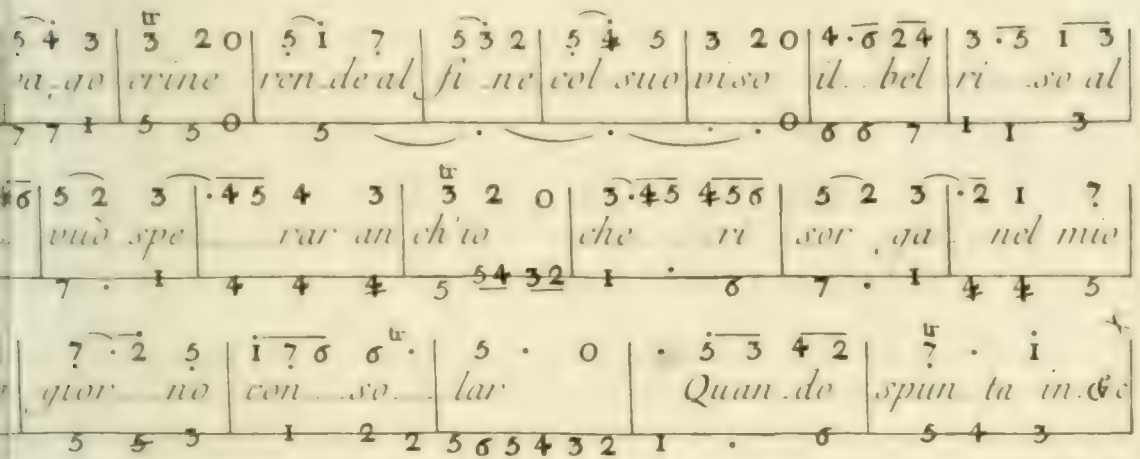 tr
5 4 3 | 3 2 0 | 5 1 7 | 5 3 2 | 5 4 5 | 3 2 0 | 4 . 6 2 4 | 3 . 5 1 3
va go crine ren de al fi ne col suo viso il bel ri so al
7 7 1 5 5 0 5 . . . . 0 6 6 7 1 1 3
tr
4 6 | 5 2 3 | . 4 5 4 3 | 3 2 0 | 3 . 4 5 4 5 6 | 5 2 3 | . 2 1 7
può spe rar an ch'io che ri sor ga nel mio
7 . 1 4 4 4 5 5 4 3 2 1 . 6 7 . 1 4 4 5
tr tr
7 . 2 5 | 1 7 6 6 . | 5 . 0 | . 5 3 4 2 | 7 . 1
gior no con so lar Quan do spun ta in
5 5 3 1 2 2 5 6 5 4 3 2 1 . 6 5 4 3